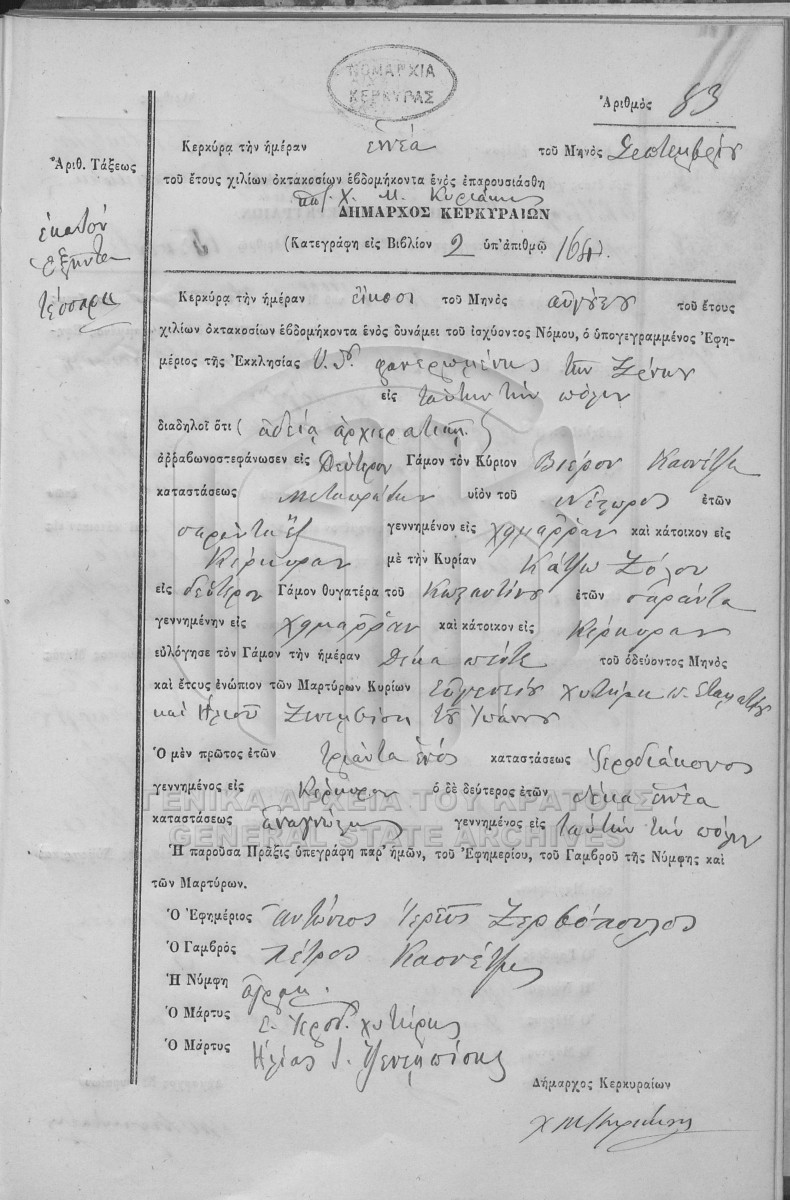 ΝΟΜΑΡΧΙΑ
ΚΕΡΚΥΡΑΣ
Ἀριθμὸς 83
Κερκύρᾳ τὴν ἡμέραν ἐννέα τοῦ Μηνὸς Σεπτεμβρίου
Ἀριθ. Τάξεως
τοῦ ἔτους χιλίων ὀκτακοσίων ἑβδομήκοντα ἑνὸς ἐπαρουσιάσθη
Χ. Μ. Κυριάκης
ΔΗΜΑΡΧΟΣ ΚΕΡΚΥΡΑΙΩΝ
ἑκατὸν
ἑξῆντα
τέσσαρα
(Κατεγράφη εἰς Βιβλίον 2 ὑπ' ἀριθμῷ 164).
Κερκύρᾳ τὴν ἡμέραν εἴκοσι τοῦ Μηνὸς αὐγούστου τοῦ ἔτους
χιλίων ὀκτακοσίων ἑβδομήκοντα ἑνὸς δυνάμει τοῦ ἰσχύοντος Νόμου, ὁ ὑπογεγραμμένος Ἐφη-
μέριος τῆς Ἐκκλησίας φανερωμένης τῶν Ξένων
εἰς ταύτην τὴν πόλιν
διαδηλοῖ ὅτι (ἀδείᾳ ἀρχιερατικῇ)
ἀῤῥαβωνοστεφάνωσεν εἰς Δεύτερον Γάμον τὸν Κύριον
καταστάσεως υἱὸν τοῦ ἐτῶν
σαράντα ἕξ γεννημένον εἰς χημαρρὰν καὶ κάτοικον εἰς
Κέρκυραν μὲ τὴν Κυρίαν
εἰς δεύτερον Γάμον θυγατέρα τοῦ ἐτῶν σαράντα
γεννημένην εἰς χημαρρὰν καὶ κάτοικον εἰς Κέρκυραν
εὐλόγησε τὸν Γάμον τὴν ἡμέραν Δέκα πέντε τοῦ ὁδεύοντος Μηνὸς
καὶ ἔτους ἐνώπιον τῶν Μαρτύρων Κυρίων Εὐγενείου χυτήρη Σταματίου
καὶ Ἠλιοῦ τοῦ Ἰωάννου
Ὁ μὲν πρῶτος ἐτῶν τριάντα ἑνὸς καταστάσεως Ἱεροδιάκονος
γεννημένος εἰς Κέρκυραν ὁ δὲ δεύτερος ἐτῶν δέκα ἐννέα
καταστάσεως Ἀναγνώστης γεννημένος εἰς ταύτην τὴν πόλιν
ΓΕΝΙΚΑ ΑΡΧΕΙΑ ΤΟΥ ΚΡΑΤΟΥΣ
GENERAL STATE ARCHIVES
Ἡ παροῦσα Πρᾶξις ὑπεγράφη παρ' ἡμῶν, τοῦ Ἐφημερίου, τοῦ Γαμβροῦ τῆς Νύμφης καὶ
τῶν Μαρτύρων.
Ὁ Ἐφημέριος Ἀντώνιος Ἱερεὺς Ζερβόπουλος
Ὁ Γαμβρὸς πέτρος
Ἡ Νύμφη
Ὁ Μάρτυς Ε. Ἱεροδ. χυτήρης
Ὁ Μάρτυς Ἠλίας Ι.
Δήμαρχος Κερκυραίων
Χ Μ Κυριάκης